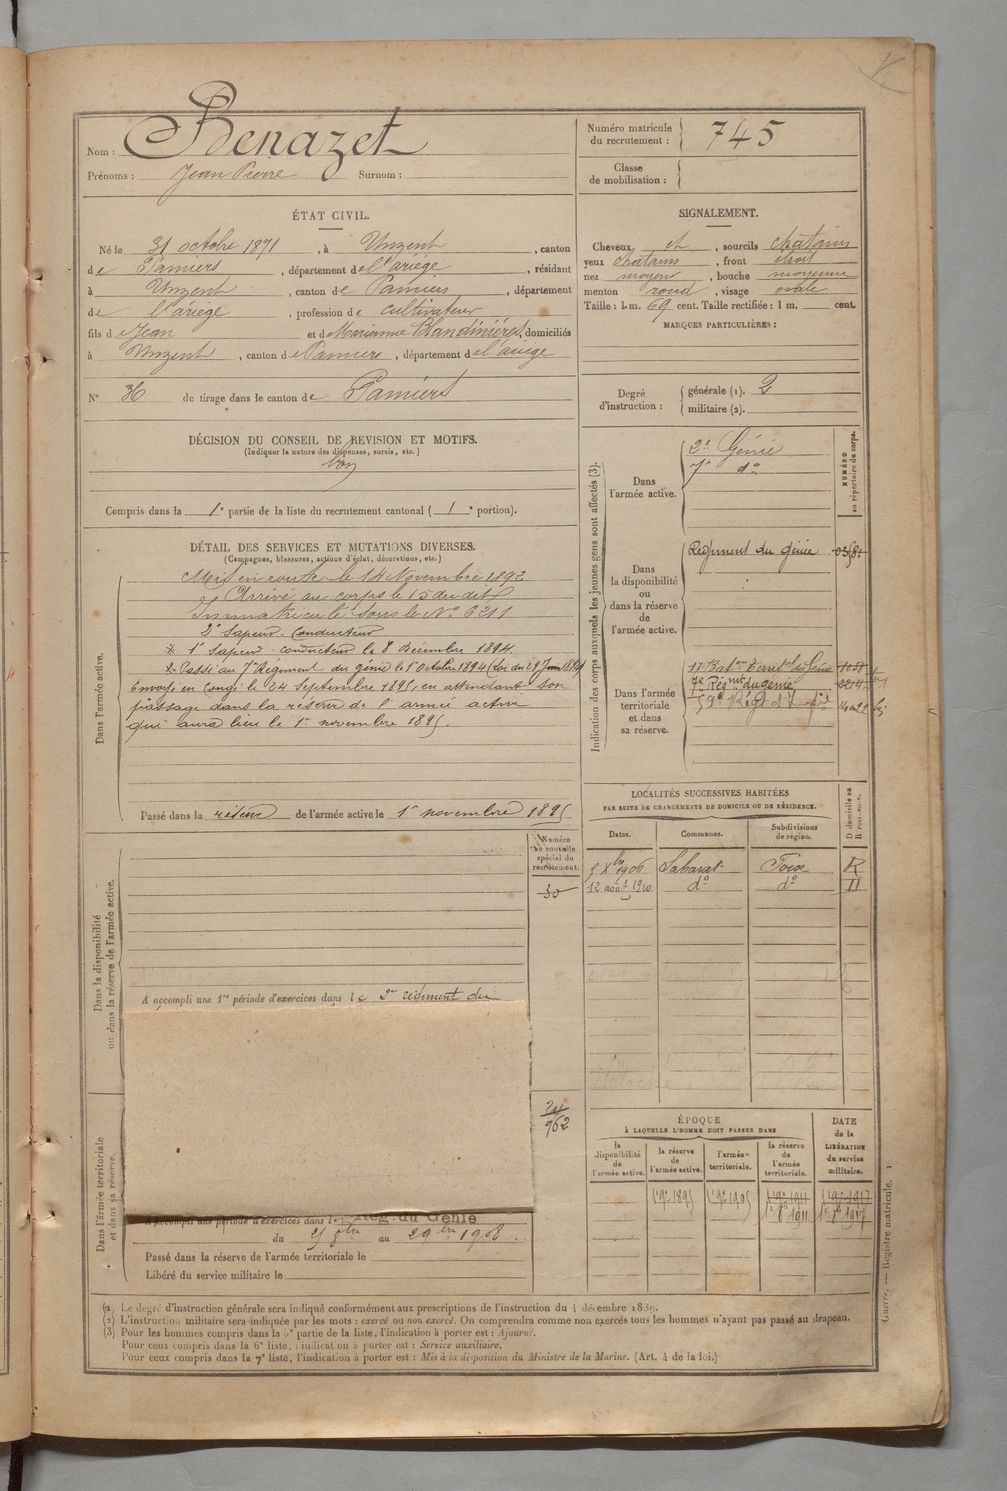 Nom : Benazet
Prénoms : Jean Pierre Surnom :
Numéro matricule du recrutement : 745
Classe de mobilisation :
ÉTAT CIVIL.
Né le 31 octobre 1871, à Unzent, canton
de Pamiers, département de l'ariège, résidant
à Unzent, canton de Pamiers, département
de l'ariège, profession de cultivateur
fils de Jean et de Marianne domiciliés
à Unzent, canton de Pamiers, département de l'ariège
N° 36 de tirage dans le canton de Pamiers
SIGNALEMENT.
Cheveux et, sourcils chatains
yeux chatains, front étroit
nez moyen, bouche moyenne
menton rond, visage ovale
Taille : 1 m. 69 cent. Taille rectifiée : 1 m. cent.
MARQUES PARTICULIÈRES :
Degré d'instruction : générale (1). 2
militaire (2).
DÉCISION DU CONSEIL DE REVISION ET MOTIFS.
(Indiquer la nature des dispenses, sursis, etc.)
bon
Compris dans la 1e partie de la liste du recrutement cantonal ( 1 e portion).
DÉTAIL DES SERVICES ET MUTATIONS DIVERSES.
(Campagnes, blessures, actions d'éclat, décorations, etc.)
Dans l'armée active.
Mis en route le 14 Novembre 1892
Arrivé au corps le 15 du dit
Immatriculé sous le N° 6211
2e Sapeur Conducteur
1r Sapeur conducteur le 8 décembre 1894
Passé au 7e Régiment du génie le 1er Octobre 1894 (Loi du 29 Juin 1894
Envoyé en congé le 24 Septembre 1895, en attendant son
passage dans la réserve de l'armée active
qui aura lieu le 1er novembre 1895.
Passé dans la réserve de l'armée active le 1er novembre 1895
Indication des corps auxquels les jeunes gens sont affectés (3).
NUMÉRO au répertoire du corps.
Dans l'armée active.
2e Génie
7e do
Dans la disponibilité ou dans la réserve de l'armée active.
Régiment du génie
Dans l'armée territoriale et dans sa réserve.
7e Régmt du génie
LOCALITÉS SUCCESSIVES HABITÉES
PAR SUITE DE CHANGEMENTS DE DOMICILE OU DE RÉSIDENCE.
D domicile ou R résidence.
Dates. Communes. Subdivisions de région.
5 Xbre 1906 Sabarat Foix R
12 août 1920 do do
Numéro au contrôle spécial du recrutement.
30
Dans la disponibilité ou dans la réserve de l'armée active.
A accompli une 1re période d'exercices dans le 2e régiment du
962
Dans l'armée territoriale et dans sa réserve.
A accompli une période d'exercices dans le Rég. du Génie
du 21 9bre au 29 bre 1908.
Passé dans la réserve de l'armée territoriale le
Libéré du service militaire le
ÉPOQUE
À LAQUELLE L'HOMME DOIT PASSER DANS
la disponibilité de l'armée active.
la réserve de l'armée active.
l'armée territoriale.
la réserve de l'armée territoriale.
DATE de la LIBÉRATION du service militaire.
1er 9bre 1895 1er 9bre 1905 1er 9bre 1911 1er 9bre 1917
(1) Le degré d'instruction générale sera indiqué conformément aux prescriptions de l'instruction du 4 décembre 1889.
(2) L'instruction militaire sera indiquée par les mots : exercé ou non exercé. On comprendra comme non exercés tous les hommes n'ayant pas passé au drapeau.
(3) Pour les hommes compris dans la 5e partie de la liste, l'indication à porter est : Ajourné.
Pour ceux compris dans la 6e liste, l'indication à porter est : Service auxiliaire.
Pour ceux compris dans la 7e liste, l'indication à porter est : Mis à la disposition du Ministre de la Marine. (Art. 4 de la loi.)
Guerre. — Registre matricule.